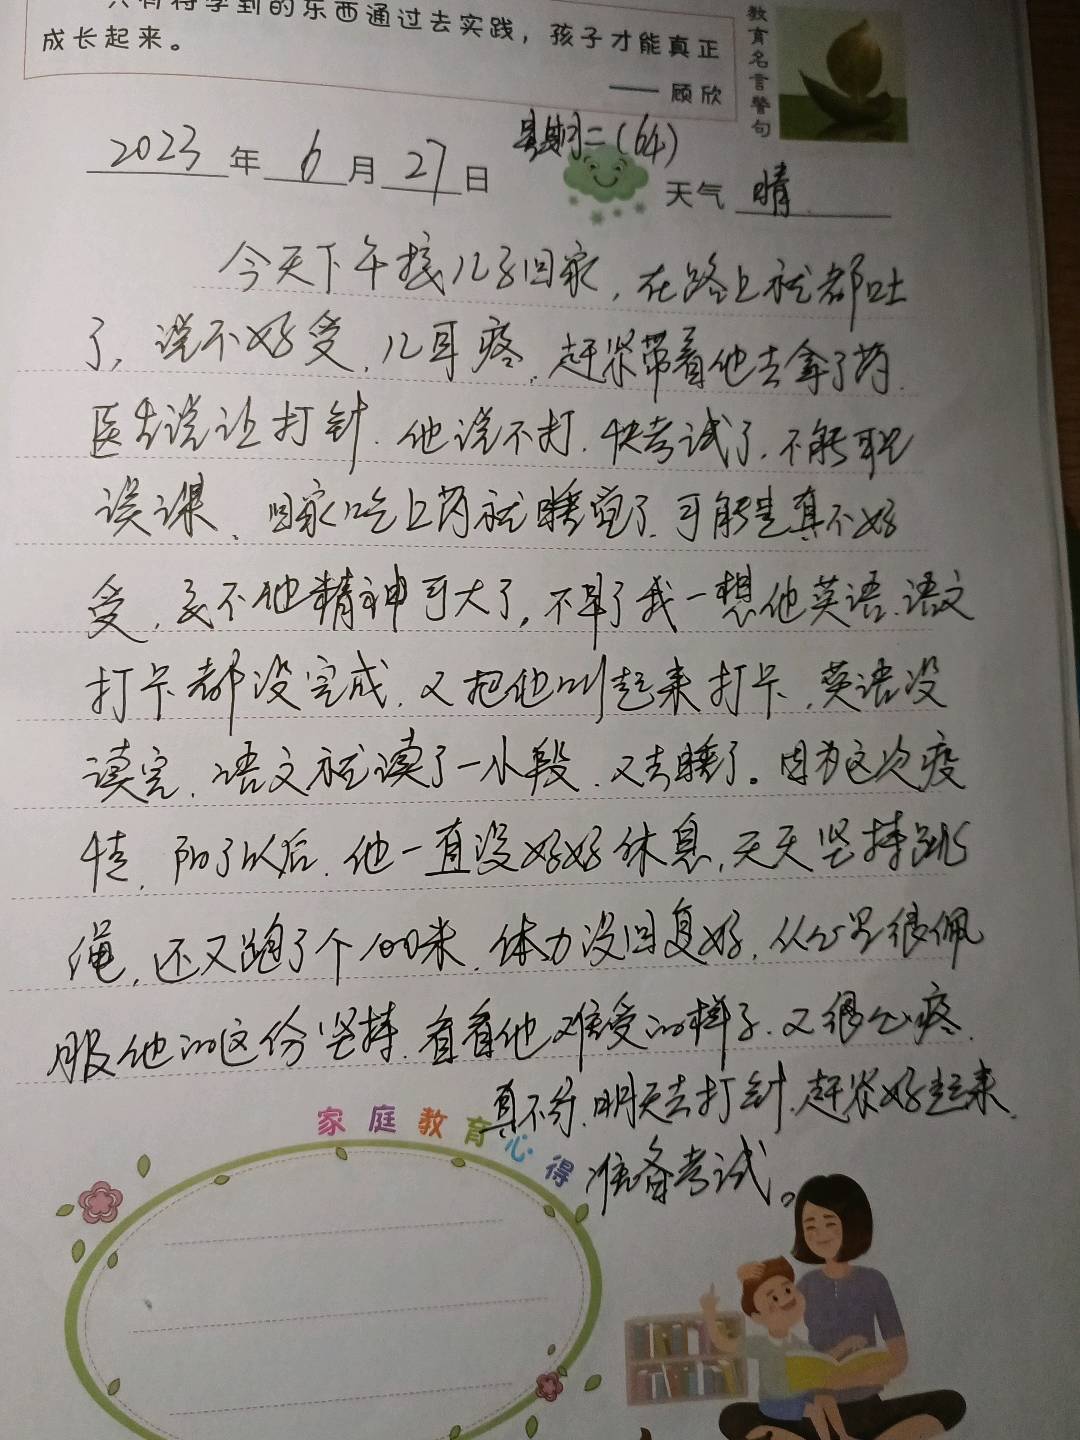 只有将学到的东西通过去实践，孩子才能真正
成长起来。
—— 顾欣
教育名言警句
星期二（64）
2023年6月27日
天气 晴
今天下午接儿子回家，在路上就都吐
了，说不好受，儿耳疼，赶紧带着他去拿了药.
医生说让打针.他说不打.快考试了.不能耽
误课、回家吃上药就睡觉了.可能是真不好
受，要不他精神可大了，不早了我一想他英语.语文
打卡都没完成.又把他叫起来打卡.英语没
读完.语文就读了一小段.又去睡了。因为这次疫
情，阳了以后.他一直没好好休息，天天坚持跳
绳，还又跑了个100米.体力没回复好，从心里很佩
服他的这份坚持.看着他难受的样子.又很心疼.
真不行.明天去打针.赶紧好起来.
准备考试。
家庭教育心得